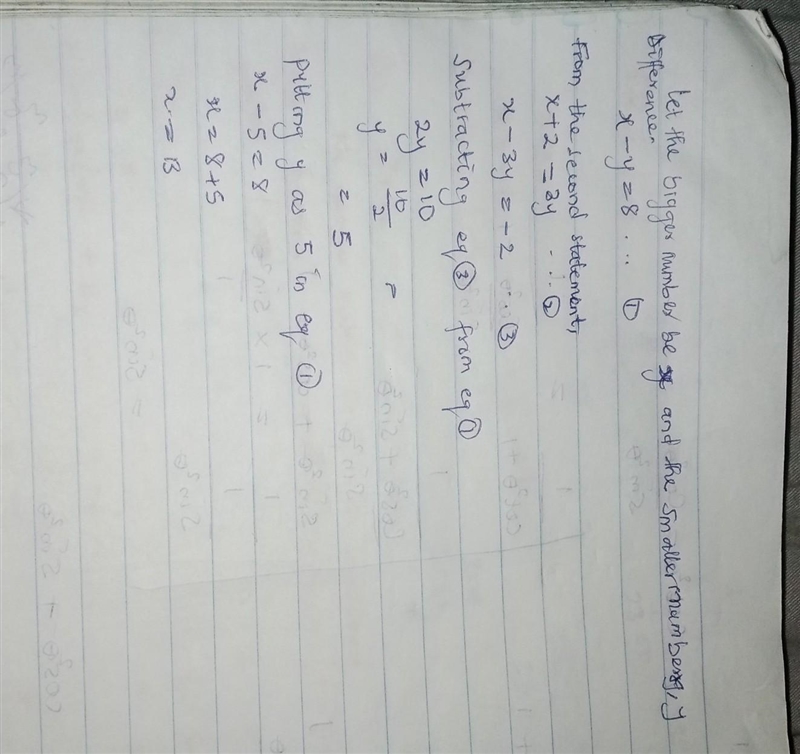 Let the bigger number be x and the smaller number, y
Difference.
x - y = 8 ... ①
From the second statement,
x + 2 = 3y ... ②
x - 3y = -2 ... ③
Subtracting eq ③ from eq ①
2y = 10
y = 10/2 =
= 5
Putting y as 5 in eq ①
x - 5 = 8
x = 8 + 5
x = 13